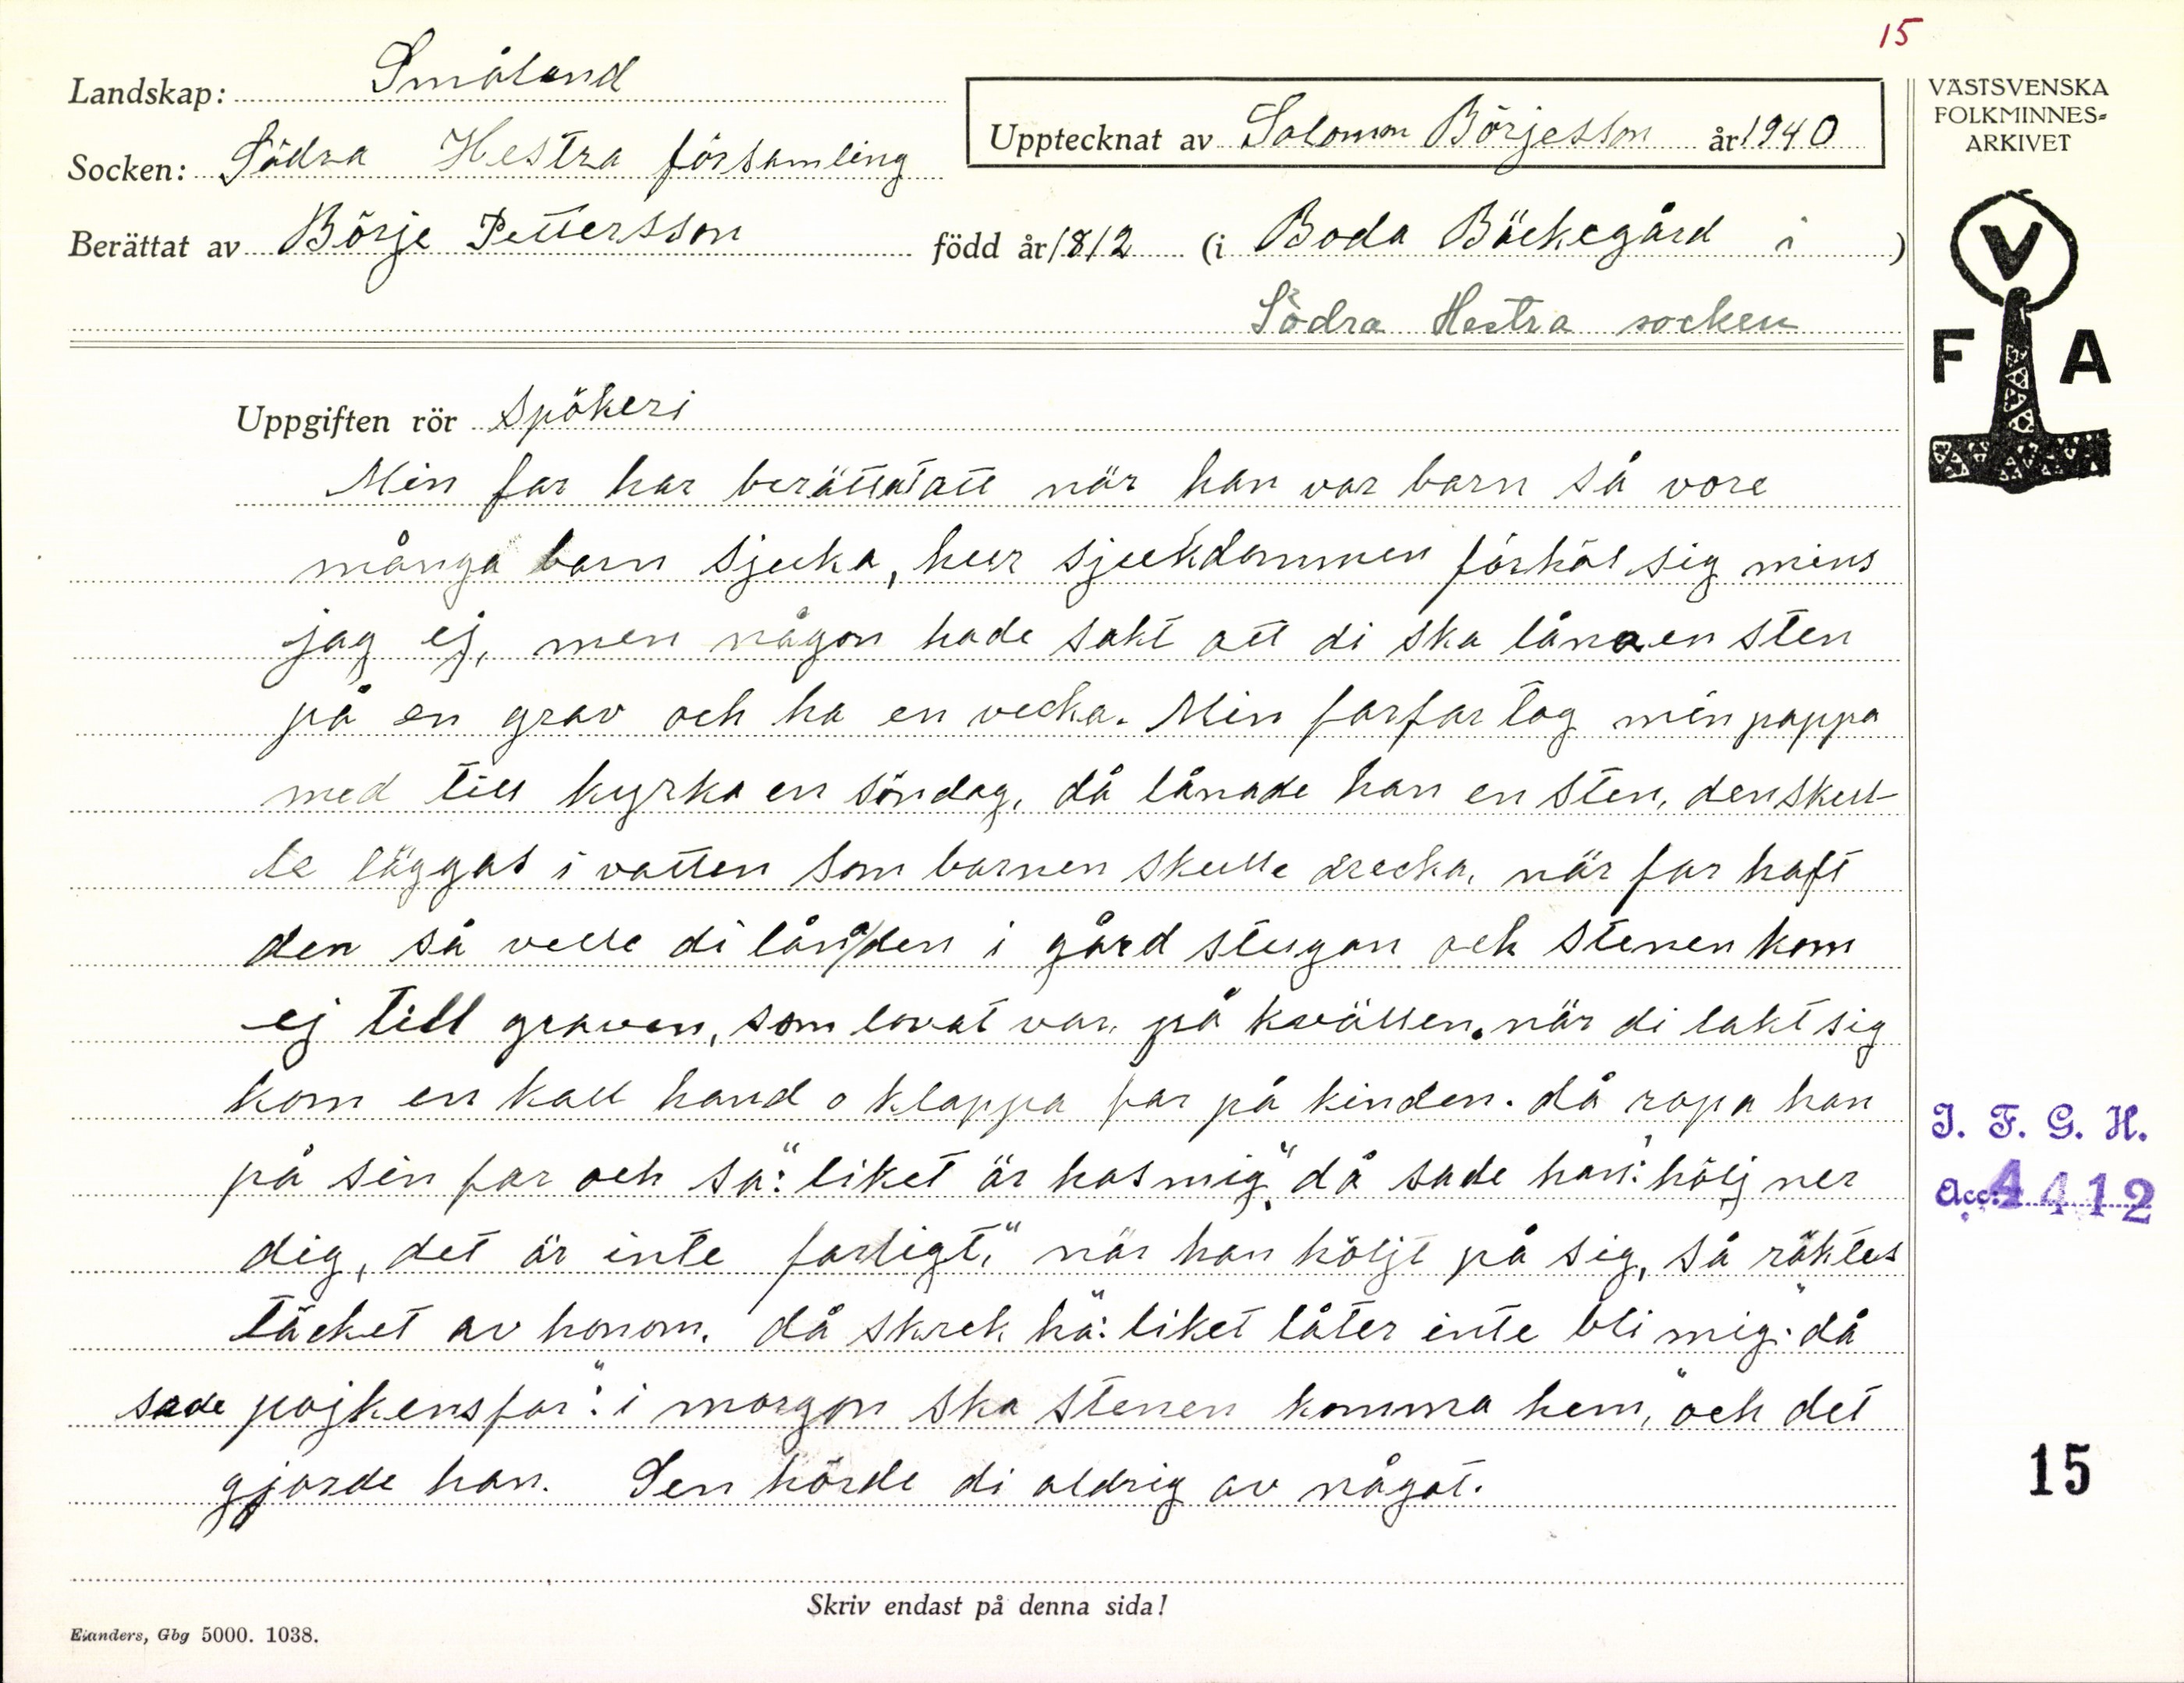 15
Landskap: Småland
Socken: Södra Hestra församling
Upptecknat av Salomon Börjesson år 1940
Berättat av Börje Pettersson född år 1812 (i Boda Bäckegård i )
Södra Hestra socken
VÄSTSVENSKA
FOLKMINNES-
ARKIVET
V
F A
Uppgiften rör spökeri
Min far har berättat att när han var barn så vore
många barn sjuka, hur sjukdommen förhöl sig mins
jag ej, men någon hade sakt att di ska låna en sten
på en grav och ha en vecka. Min farfar tog min pappa
med till kyrka en söndag, då lånade han en sten, den skul-
le läggas i vatten som barnen skulle drecka, när far haft
den så velle di låna den i gård stugan och stenen kom
ej till graven, som lovat var, på kvällen. när di lakt sig
kom en kall hand o klappa far på kinden. då ropa han
på sin far och sa: "liket är hos mig" då sade han: "hölj ner
dig, det är inte farligt," när han höljt på sig, så räktes
täcket av honom, då skrek ha: "liket låter inte bli mig" då
sade pojkens far: "i morgon ska stenen komma hem," och det
gjorde han. Sen hörde di aldrig av något.
I. F. G. H.
Acc. 4412
15
Skriv endast på denna sida!
Elanders, Gbg 5000. 1038.